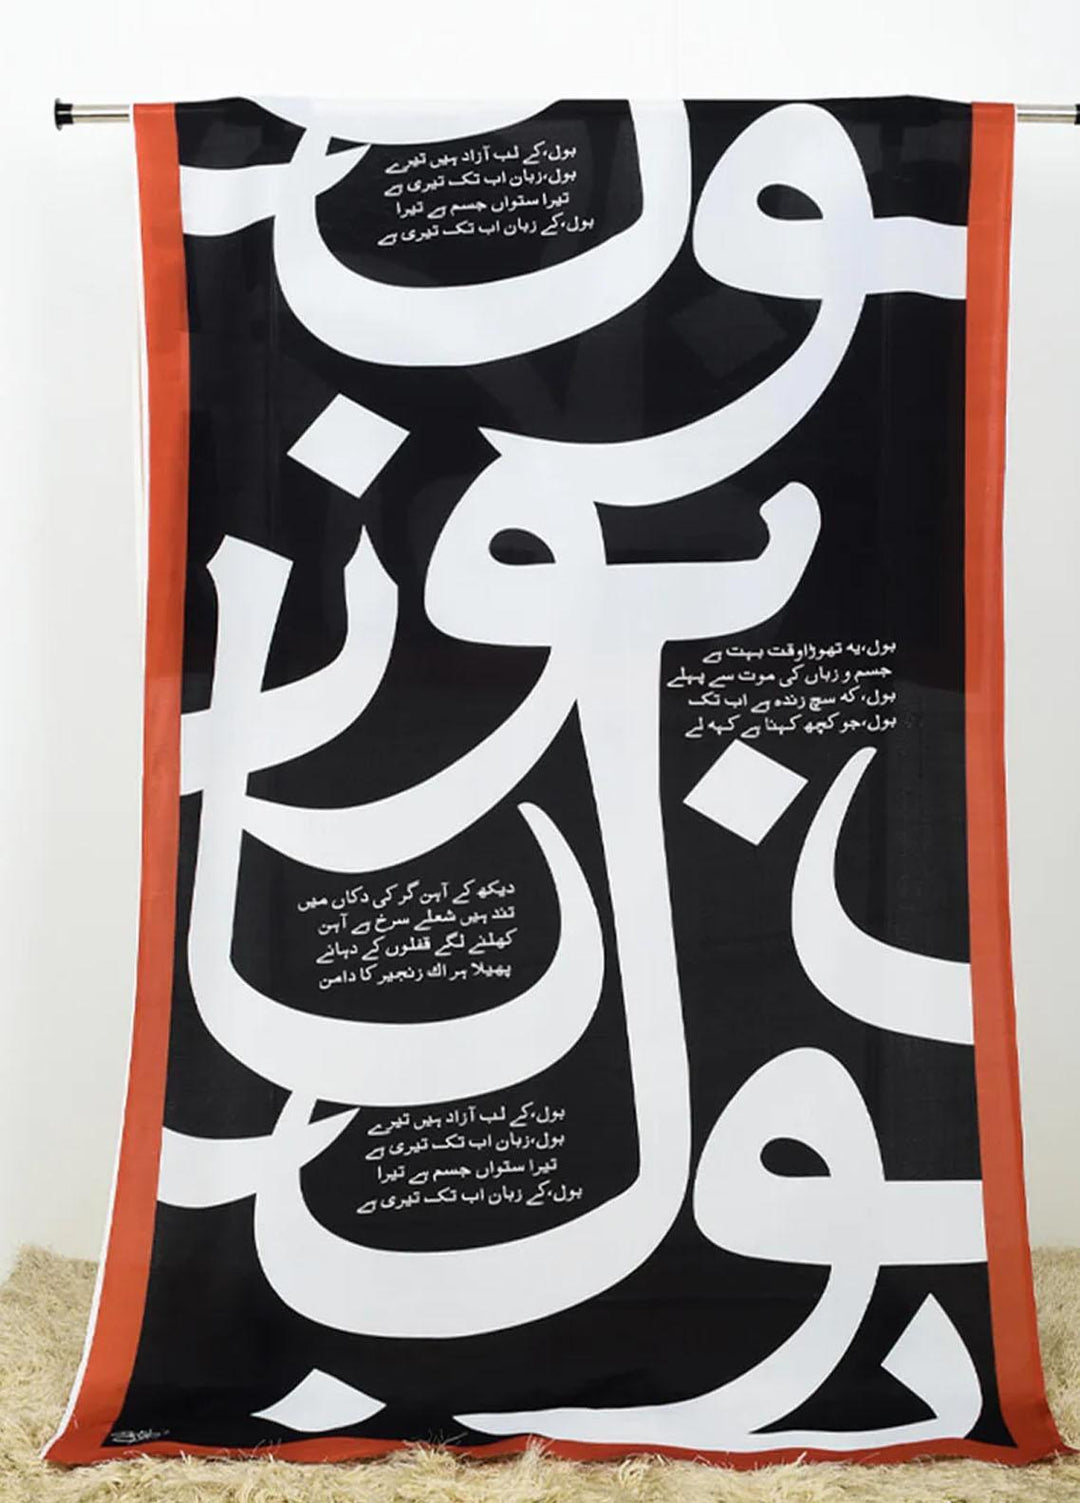 بول،کے لب آزاد ہیں تیرے
بول،زبان اب تک تیری ہے
تیرا ستواں جسم ہے تیرا
بول،کے زبان اب تک تیری ہے
بول،یہ تھوڑاوقت بہت ہے
جسم و زباں کی موت سے پہلے
بول، کہ سچ زندہ ہے اب تک
بول،جو کچھ کہنا ہے کہہ لے
دیکھ کے آہن گر کی دکاں میں
تند ہیں شعلے سرخ ہے آہن
کھلنے لگے قفلوں کے دہانے
پھیلا ہر اك زنجیر کا دامن
بول،کے لب آزاد ہیں تیرے
بول،زبان اب تک تیری ہے
تیرا ستواں جسم ہے تیرا
بول،کے زبان اب تک تیری ہے
بول